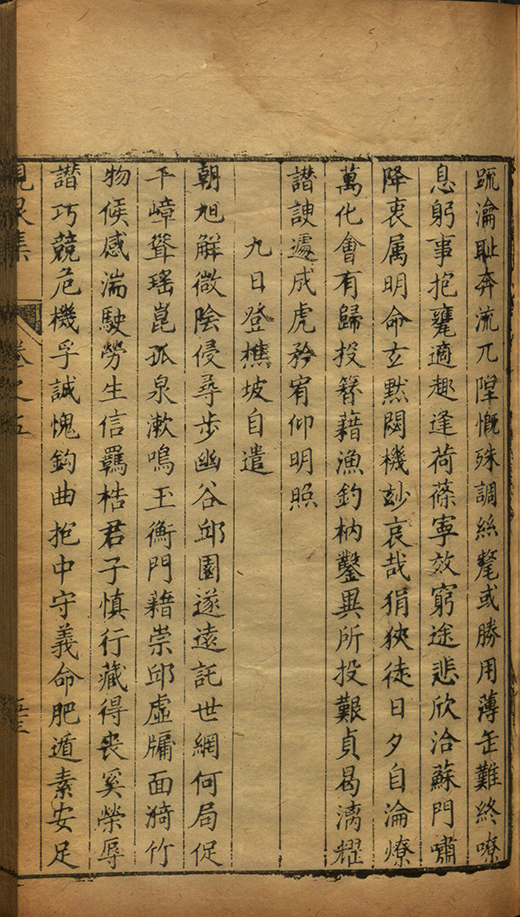 疏瀹耻奔流兀陧慨殊調絲鼗或勝用薄缶難終嘹
息躬事抱甕適趣逢荷蓧寧效窮途悲欣洽蘇門嘯
降衷属明命玄默閟機玅哀哉狷狹徒日夕自淪燎
萬化會有歸投簪藉漁釣枘鑿異所投艱貞曷漓燿
譛諛遽成虎矜宥仰明照
九日登樵坡自遣
朝旭解微陰侵尋步幽谷邱園遂遠託世網何局促
下嶂聳瑤崑孤泉漱鳴玉衡門藉崇邱虛牖面漪竹
物候感湍駛勞生信羈梏君子慎行藏得丧奚榮辱
譛巧競危機孚誠愧鈞曲抱中守義命肥遁素安足
集 卷之五